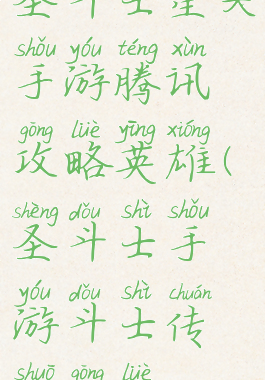 圣斗士星矢
shǒu yóu téng xùn
手游腾讯
gōng lüè yīng xióng
攻略英雄(
shèng dǒu shì shǒu
圣斗士手
yóu dǒu shì chuán
游斗士传
shuō gōng lüè